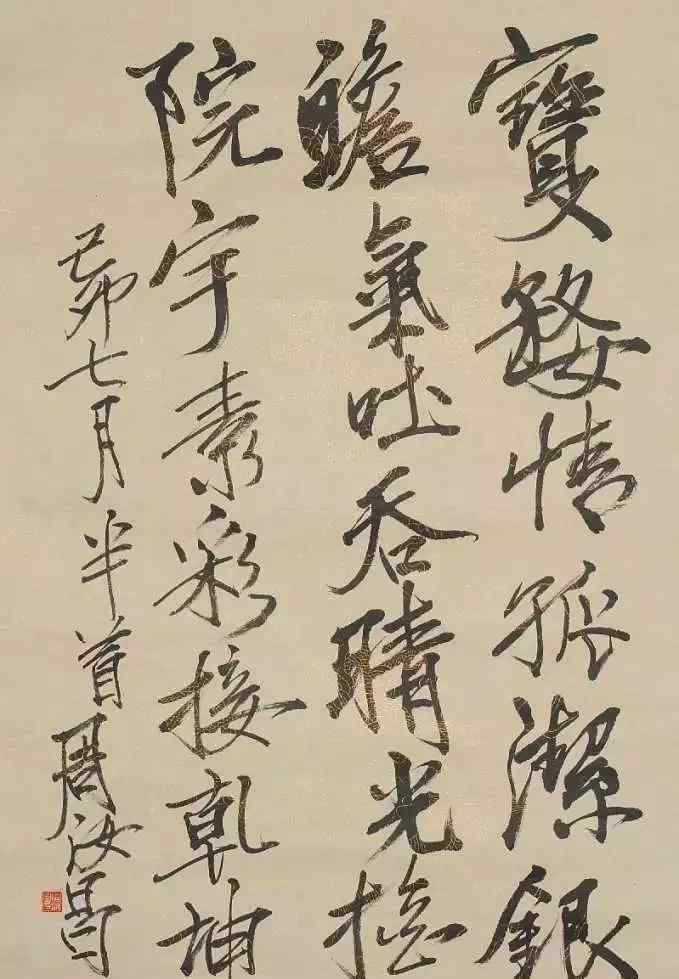 寶婺情孤潔銀
蟾氣吐吞晴光搖
院宇素彩接乾坤
己卯七月半首周汝昌